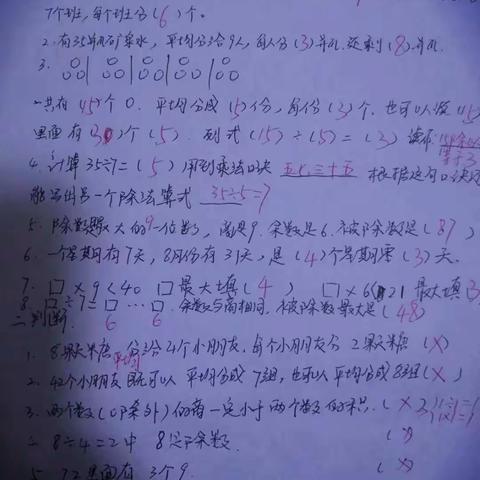 7个班,每个班分(6)个。
2.有35瓶矿泉水,平均分给9人,每人分(3)瓶,还剩(8)瓶
3.
一共有(15)个○.平均分成(5)份,每份(3)个.也可以说(15)
里面有(3)个(5).列式(15)÷(5)=(3) 读作:
4.计算35÷7=(5)用到乘法口诀 五七三十五 根据这句口诀还
能写出另一个除法算式 35÷5=7
5.除数是最大的一位数,商是9.余数是6.被除数是(87)
6.一个星期有7天,8月份有31天,是(4)个星期零(3)天.
7.□×9<40 □最大填(4) □×6<21 最大填(3
8.□÷7=□…□.余数与商相同,被除数最大是(48)
6 6
二判断.
1.8颗糖 分给4个小朋友.每个小朋友分2颗糖(×)
平均
2.42个小朋友既可以平均分成7组,也可以平均分成8组(×)
3.两个数(0除外)的商一定小于两个数的积.(×)
8÷4=2中 8是除数. (×)
5.72里面有3个9. (×)